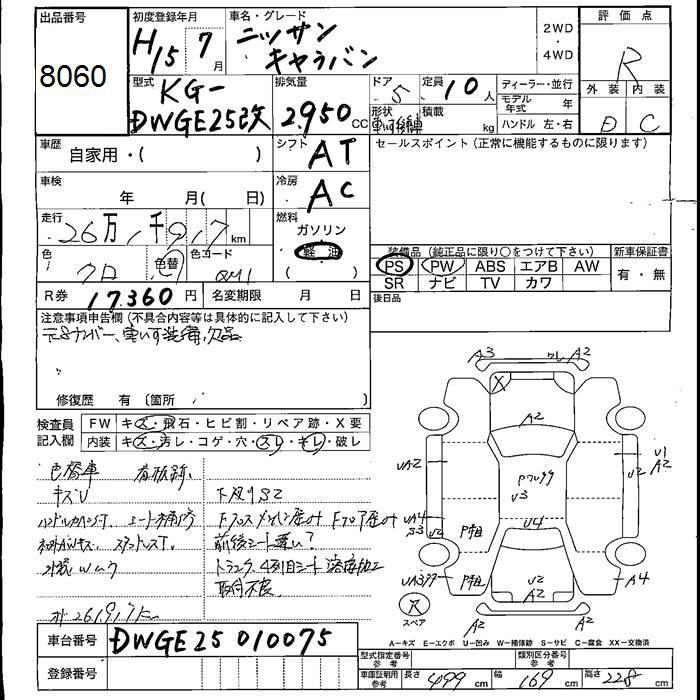 出品番号
8060
初度登録年月
H15年7月
車名・グレード
ニッサン
キャラバン
2WD
・
4WD
評価点
R
外装 内装
D C
型式
KG-
DWGE25改
排気量
2950 cc
ドア
5
定員
10人
形状
積載
kg
ディーラー・並行
モデル年式 年
ハンドル 左・右
車歴
自家用・( )
シフト
AT
セールスポイント (正常に機能するものに限ります)
車検
年 月( 日)
冷房
AC
走行
26万1千917km
燃料
ガソリン
軽油
( )
色
クロ
色替
色コード
装備品 (純正品に限り○をつけて下さい)
PS PW ABS エアB AW
SR ナビ TV カワ
新車保証書
有・無
R券 17,360円
名変期限 月 日
後日品
注意事項申告欄 (不具合内容等は具体的に記入して下さい)
元8ナンバー、車いす装備欠品
修復歴 有 〔箇所 〕
検査員
記入欄
FW キズ・飛石・ヒビ割・リペア跡・X要
内装 キズ・汚レ・コゲ・穴・スレ・キレ・破レ
色替車 看板跡、
キズU
下廻りS2
前後シート違い?
外装Wムク
トランク、4列目シート溶接加工
取付不良
A3 ワレ A2
X
A2
UA2
U1
A2
U2
U3
UA4
S3
U2
U4
P錆
P錆
U2
A2
A4
A2
A2
R
スペア
A-キズ E-エクボ U-凹み W-補修跡 S-サビ C-腐食 XX-交換済
車台番号 DWGE25 010075
登録番号
型式指定番号
参考
類別区分番号
参考
車庫証明用
参考
長さ 499 cm
幅 169 cm
高さ 228 cm